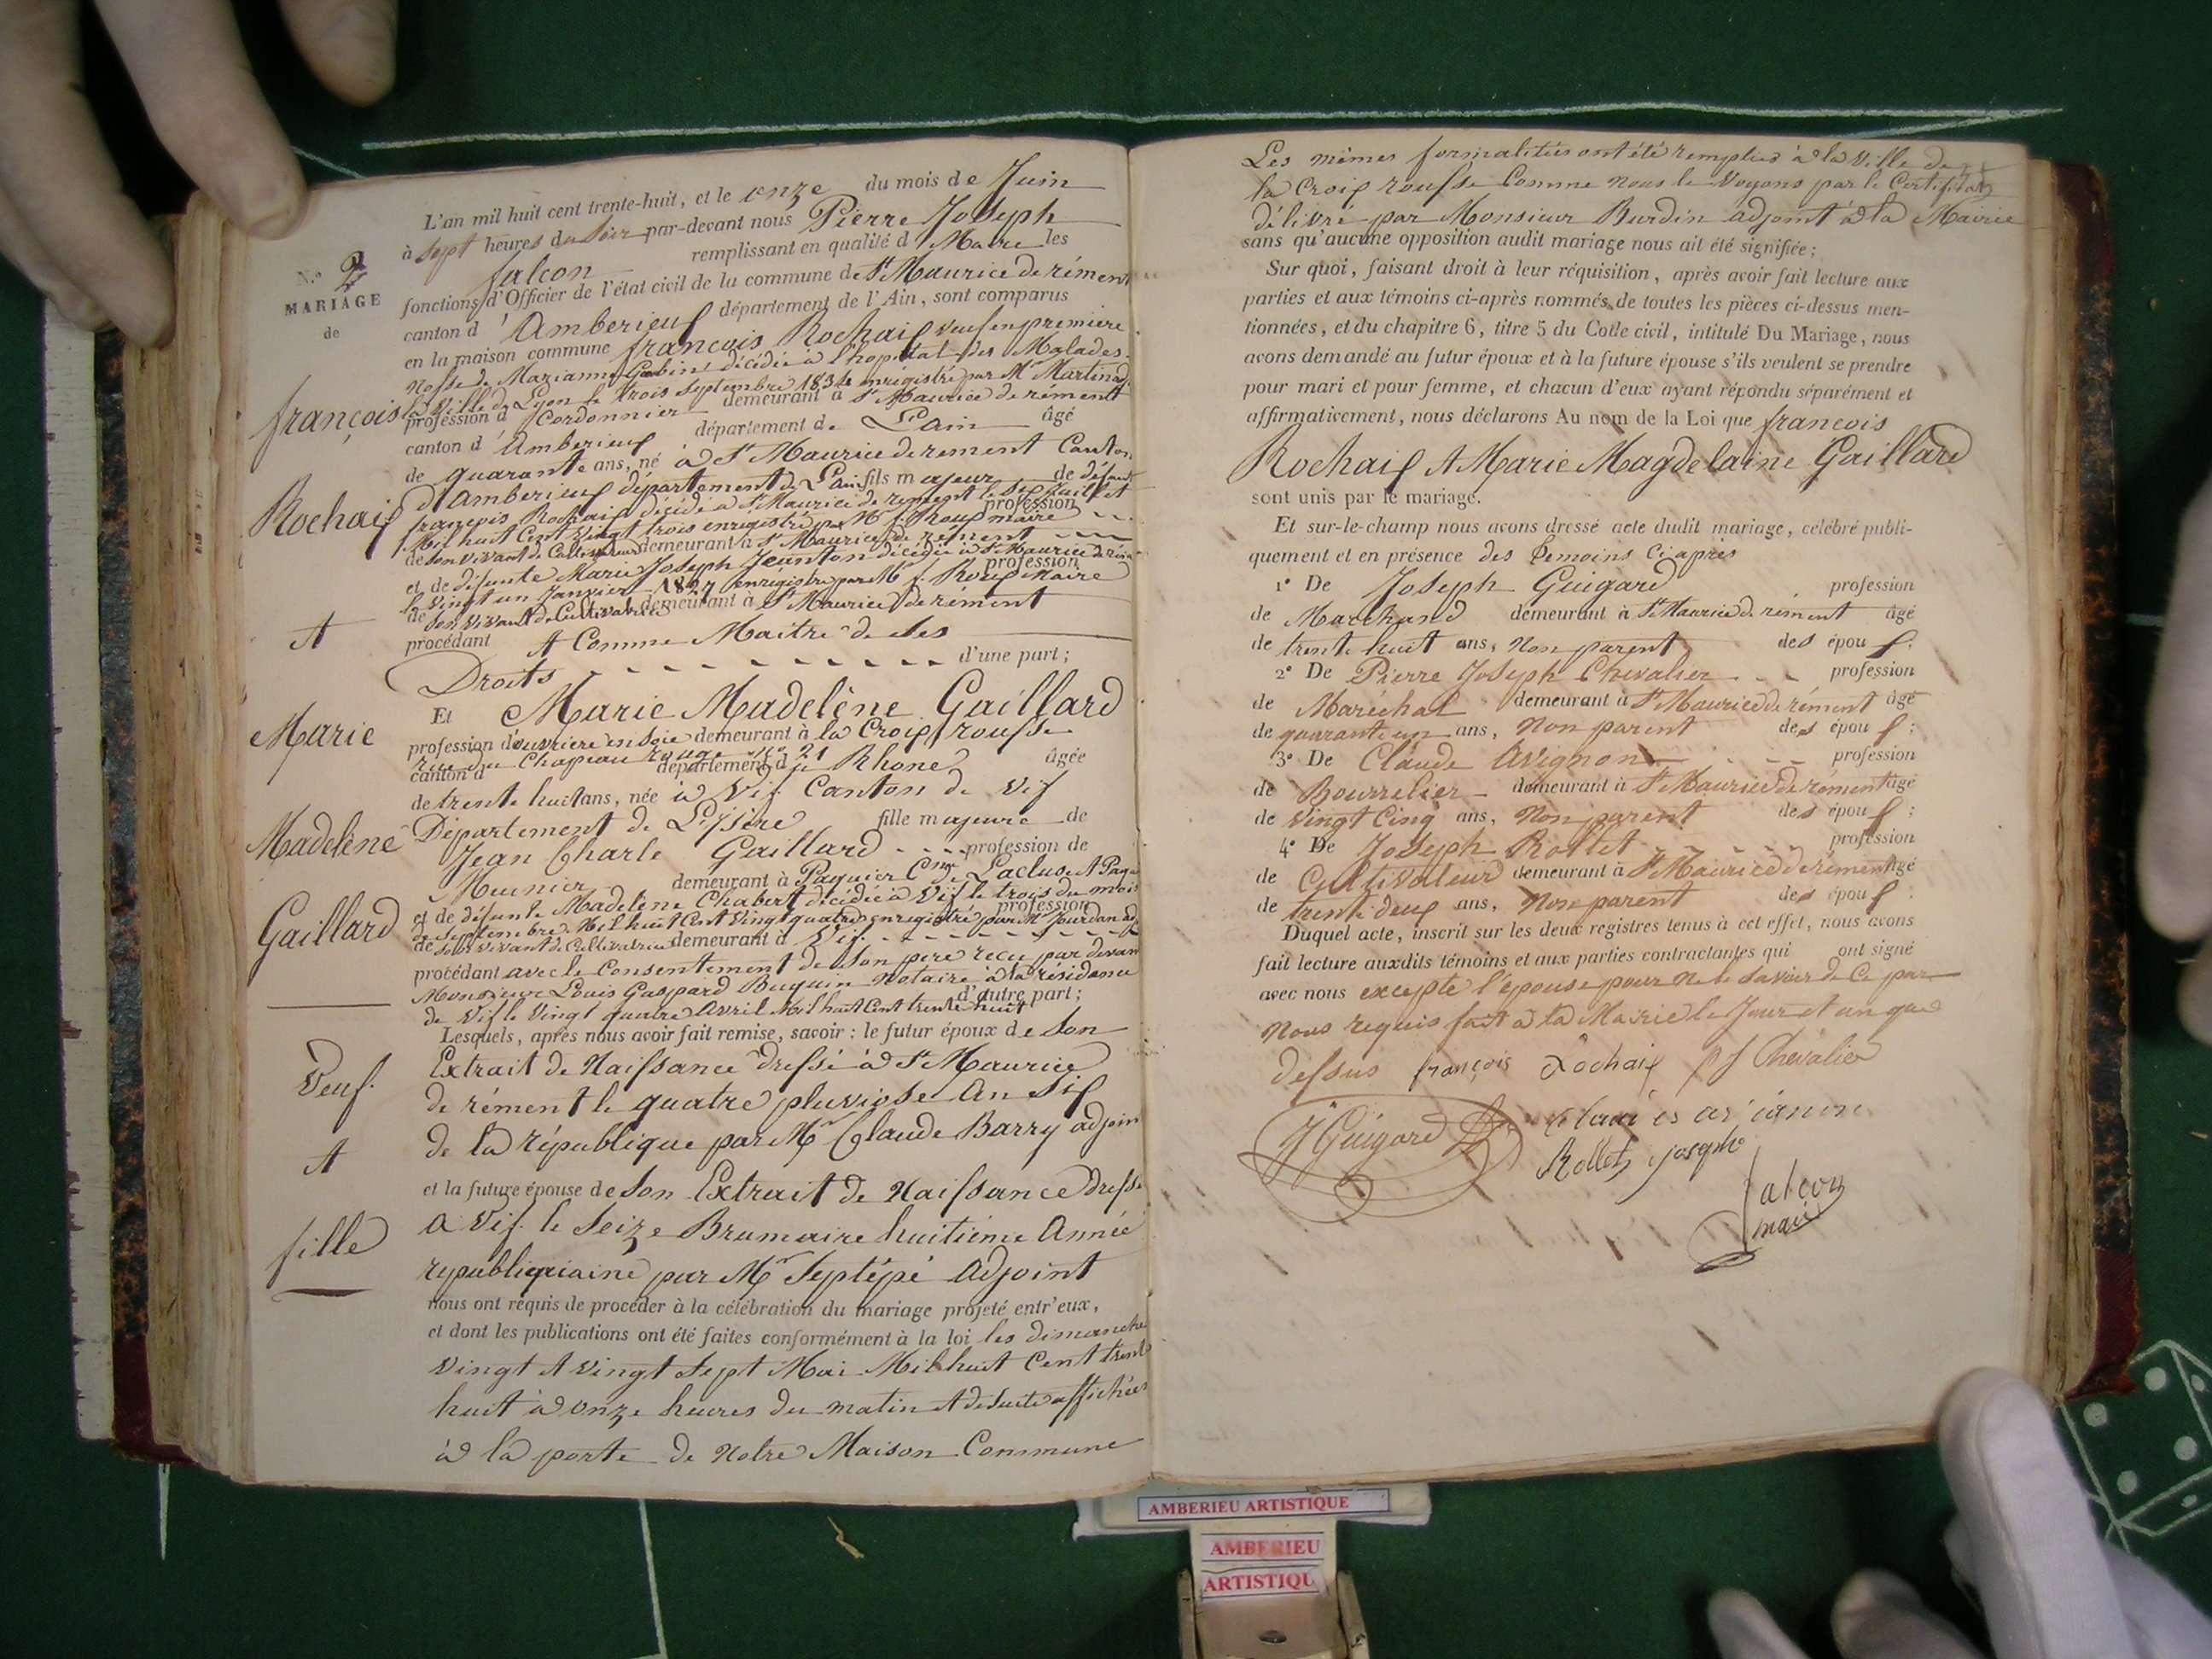 L'an mil huit cent trente-huit, et le onze du mois de Juin
à Sept heures du Soir par-devant nous Pierre Joseph
falcon remplissant en qualité d Maire les
fonctions d'Officier de l'état civil de la commune de St Maurice de rément
canton d'Amberieux département de l'Ain, sont comparus
en la maison commune françois Rochaix veuf en première
Nosse de Marianne décédée à l'hopital des Malades
la Ville de Lyon le trois Septembre 1834 enrégistré par Mr Martin adj.
profession d Cordonnier demeurant à St Maurice de rément
canton d'Amberieux département de L'ain âgé
de quarante ans, né à St Maurice de rement Canton
d'Amberieux département de L'ain fils majeur de défunt
françois Rochaix décédé à St Maurice de rement le Juillet
profession
Mil huit Cent Vingt trois enrégistré par Mr f. Roux maire
de Son vivant de Cultivateur demeurant à St Maurice de rement
et de défunte Marie Joseph Jeanton décédée à St Maurice de rém
profession
le vingt un Janvier 1827 enrégistré par Mr f. Roux Maire
de Son vivant de Cultivatrice demeurant à St Maurice de rément
procédant et Comme Maitre de Ses
Droits d'une part;
Et Marie Madelène Gaillard
profession d'ouvriere en Soie demeurant à la Croix rousse
rue du Chapeau rouge No 21
canton d département du Rhone âgée
de trente huit ans, née à Vif Canton de Vif
Département de L'Isère fille majeure de
Jean Charle Gaillard profession de
Meunier demeurant à Paquier Cne de Lacluse et Paqu
et de défunte Madelène Chabert décédée à Vif le trois du mois
profession
de Septembre Mil huit Cent Vingt quatre enregistré par Mr Jourdan adj
de Son vivant de Cultivatrice demeurant à Vif
procédant avec le Consentement de Son pere recu par devan
Monsieur Louis Gaspard Buquin Notaire à la résidance
d'autre part;
de Vif le Vingt quatre Avril Mil huit Cent trente huit
Lesquels, après nous avoir fait remise, savoir : le futur époux de Son
Extrait de Naissance dressé à St Maurice
de rément le quatre pluviose An Six
de la république par Mr Claude Barry adjoin
et la future épouse de Son Extrait de Naissance dressé
a Vif le Seize Brumaire huitième Année
républiquiaine par Mr Septépé Adjoint
nous ont requis de procéder à la célébration du mariage projeté entr'eux,
et dont les publications ont été faites conformément à la loi les dimanche
vingt et vingt Sept Mai Mil huit Cent trente
huit à onze heures du matin et de Suite affichées
à la porte de Notre Maison Commune
No 2
MARIAGE
de
françois
Rochaix
et
Marie
Madelène
Gaillard
Veuf
et
fille
Les mêmes formalitiés ont été remplies à la Ville de
la Croix rousse Comme Nous le Voyons par le Certificat
délivré par Monsieur Burdin adjoint à la Mairie
sans qu'aucune opposition audit mariage nous ait été signifiée;
Sur quoi, faisant droit à leur réquisition, après avoir fait lecture aux
parties et aux témoins ci-après nommés de toutes les pièces ci-dessus men-
tionnées, et du chapitre 6, titre 5 du Code civil, intitulé Du Mariage, nous
avons demandé au futur époux et à la future épouse s'ils veulent se prendre
pour mari et pour femme, et chacun d'eux ayant répondu séparément et
affirmativement, nous déclarons Au nom de la Loi que françois
Rochaix et Marie Magdelaine Gaillard
sont unis par le mariage.
Et sur-le-champ nous avons dressé acte dudit mariage, célébré publi-
quement et en présence des temoins Ciaprès
1° De Joseph Guigard profession
de Marchand demeurant à St Maurice de rément âgé
de trente huit ans, Non parent des époux;
2° De Pierre Joseph Chevalier profession
de Maréchal demeurant à St Maurice de rément âgé
de quarante un ans, Non parent des époux;
3° De Claude Avignon profession
de Bourrelier demeurant à St Maurice de rément âgé
de Vingt Cinq ans, Non parent des époux;
4° De Joseph Rollet profession
de Cultivateur demeurant à St Maurice de rément âgé
de trente deux ans, Non parent des époux.
Duquel acte, inscrit sur les deux registres tenus à cet effet, nous avons
fait lecture auxdits témoins et aux parties contractantes qui ont signé
avec nous excepté l'épouse pour ne le Savoir de Ce par
Nous requis fait à la Mairie le Jour et an que
dessus françois Rochaix PJ Chevalier
J Guigard
Rollet joseph
falcon
maire
AMBERIEU ARTISTIQUE
AMBERIEU
ARTISTIQU